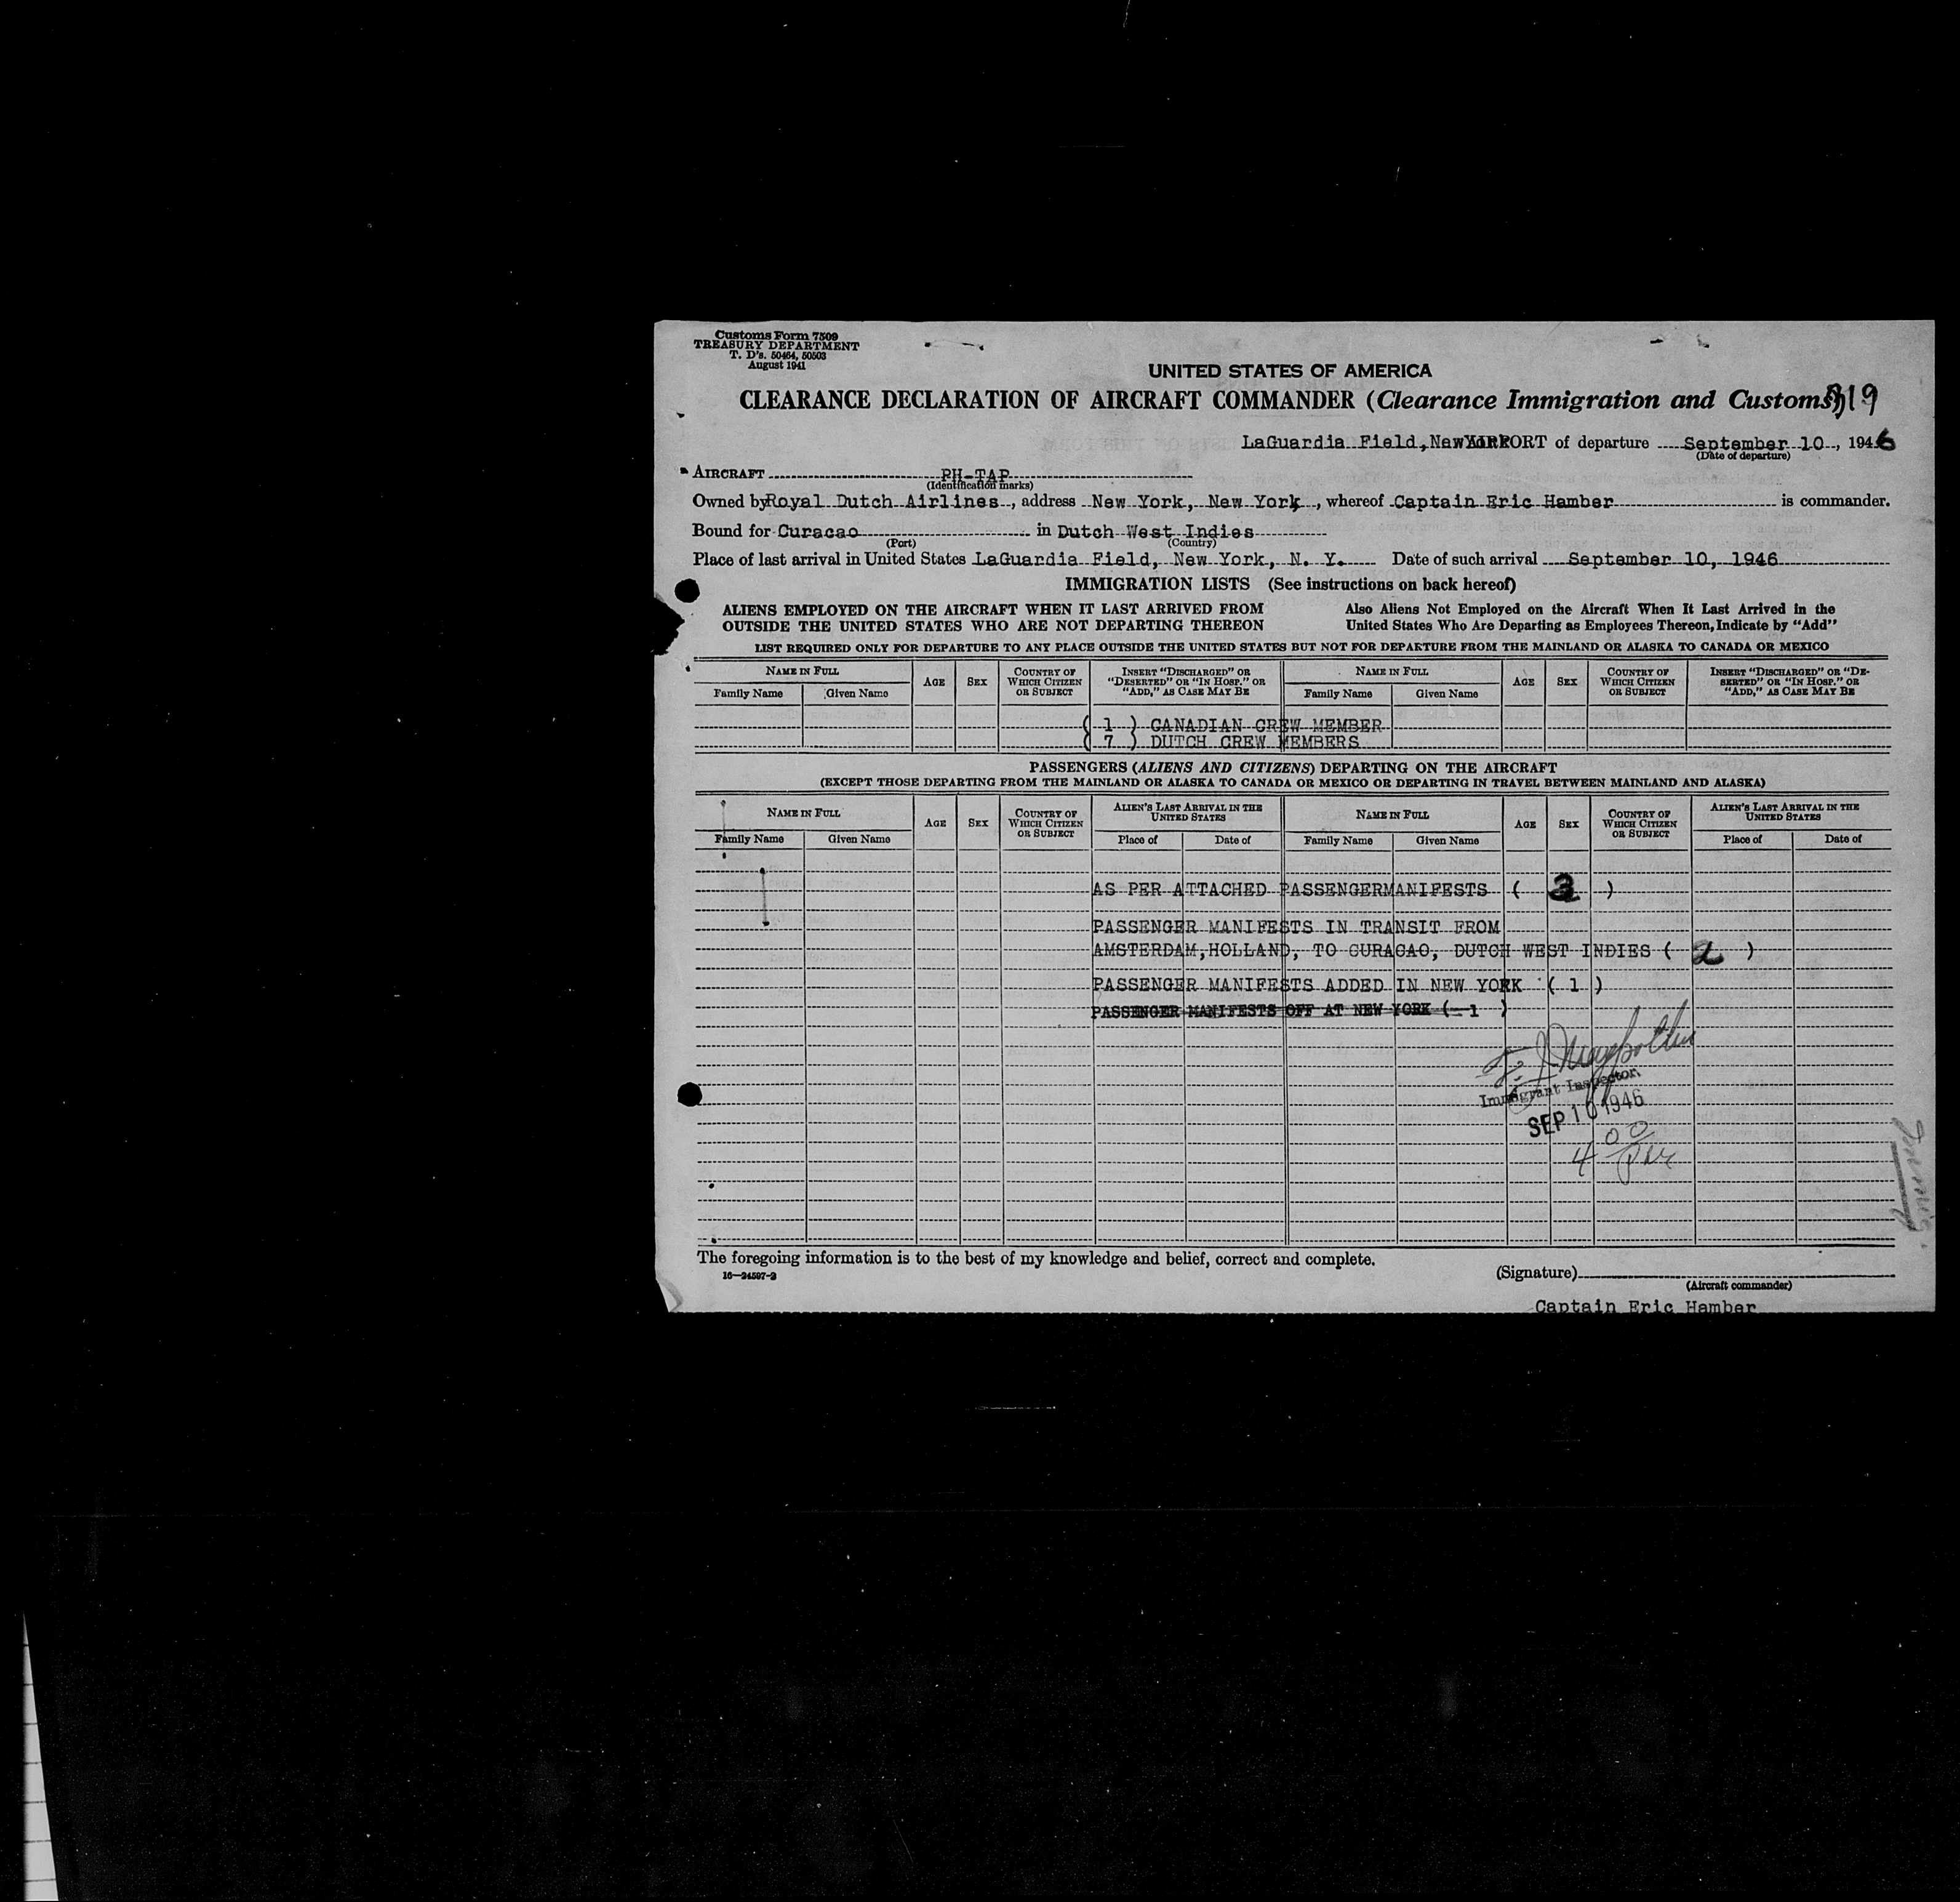 Customs Form 7509
TREASURY DEPARTMENT
T. D's. 50464, 50503
August 1941
UNITED STATES OF AMERICA
CLEARANCE DECLARATION OF AIRCRAFT COMMANDER (Clearance Immigration and Customs)
LaGuardia Field, New York AIRPORT of departure September 10, 1946
(Date of departure)
AIRCRAFT PH-TAP
(Identification marks)
Owned by Royal Dutch Airlines, address New York, New York, whereof Captain Eric Hamber is commander.
Bound for Curacao in Dutch West Indies
(Port) (Country)
Place of last arrival in United States LaGuardia Field, New York, N. Y. Date of such arrival September 10, 1946
IMMIGRATION LISTS (See instructions on back hereof)
ALIENS EMPLOYED ON THE AIRCRAFT WHEN IT LAST ARRIVED FROM
OUTSIDE THE UNITED STATES WHO ARE NOT DEPARTING THEREON
Also Aliens Not Employed on the Aircraft When It Last Arrived in the
United States Who Are Departing as Employees Thereon, Indicate by "Add"
LIST REQUIRED ONLY FOR DEPARTURE TO ANY PLACE OUTSIDE THE UNITED STATES BUT NOT FOR DEPARTURE FROM THE MAINLAND OR ALASKA TO CANADA OR MEXICO
NAME IN FULL AGE SEX COUNTRY OF WHICH CITIZEN OR SUBJECT INSERT "DISCHARGED" OR "DESERTED" OR "IN HOSP." OR "ADD," AS CASE MAY BE NAME IN FULL AGE SEX COUNTRY OF WHICH CITIZEN OR SUBJECT INSERT "DISCHARGED" OR "DESERTED" OR "IN HOSP." OR "ADD," AS CASE MAY BE
Family Name Given Name Family Name Given Name
( 1 ) CANADIAN CREW MEMBER
( 7 ) DUTCH CREW MEMBERS
PASSENGERS (ALIENS AND CITIZENS) DEPARTING ON THE AIRCRAFT
(EXCEPT THOSE DEPARTING FROM THE MAINLAND OR ALASKA TO CANADA OR MEXICO OR DEPARTING IN TRAVEL BETWEEN MAINLAND AND ALASKA)
NAME IN FULL AGE SEX COUNTRY OF WHICH CITIZEN OR SUBJECT ALIEN'S LAST ARRIVAL IN THE UNITED STATES NAME IN FULL AGE SEX COUNTRY OF WHICH CITIZEN OR SUBJECT ALIEN'S LAST ARRIVAL IN THE UNITED STATES
Family Name Given Name Place of Date of Family Name Given Name Place of Date of
AS PER ATTACHED PASSENGERMANIFESTS ( 3 )
PASSENGER MANIFESTS IN TRANSIT FROM
AMSTERDAM, HOLLAND, TO CURACAO, DUTCH WEST INDIES ( 2 )
PASSENGER MANIFESTS ADDED IN NEW YORK ( 1 )
PASSENGER MANIFESTS OFF AT NEW YORK ( 1 )
Immigrant Inspector.
SEP 10 1946
4 00 PM
The foregoing information is to the best of my knowledge and belief, correct and complete.
16—24597-2
(Signature)
(Aircraft commander)
Captain Eric Hamber